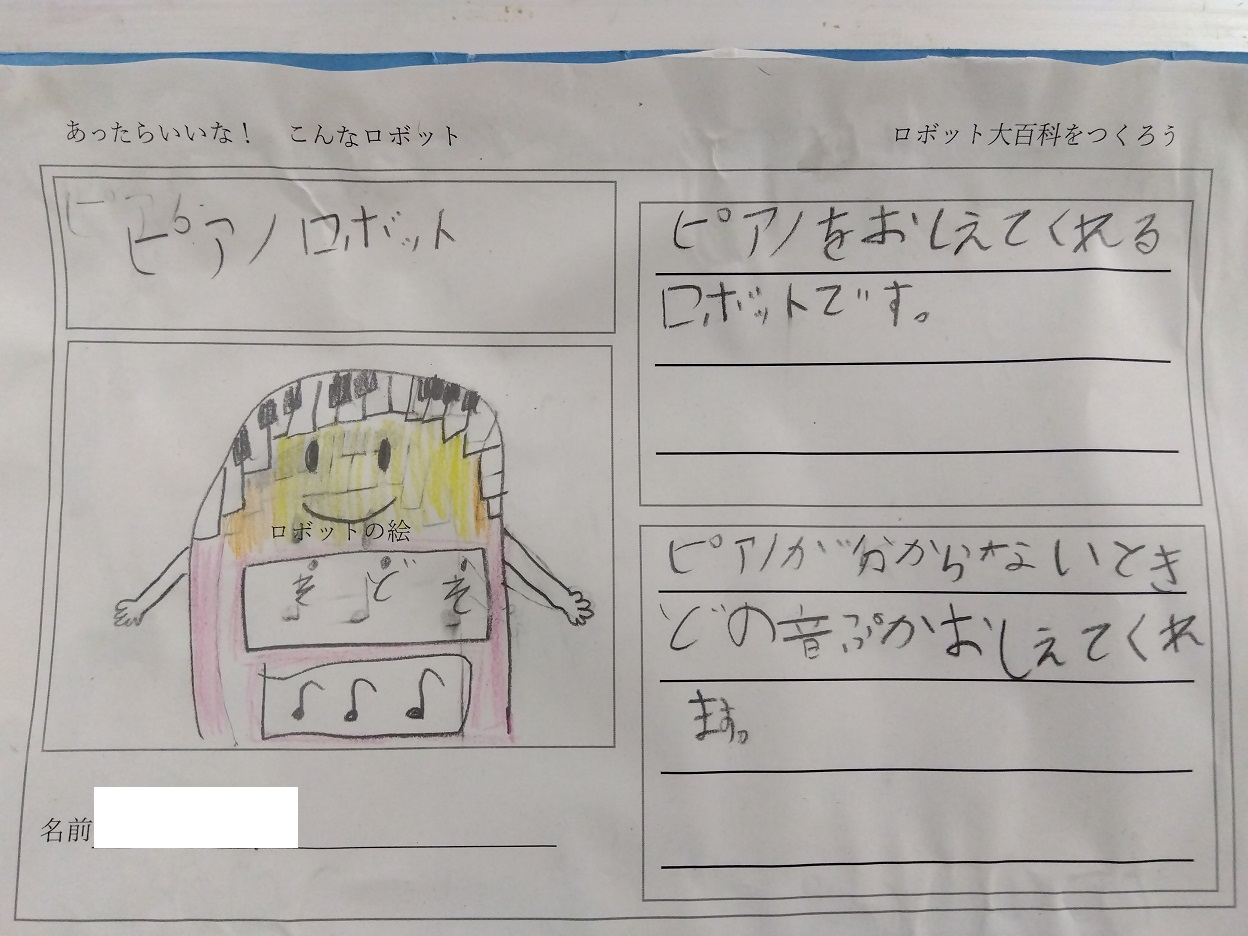 あったらいいな！　こんなロボット
ロボット大百科をつくろう
ピアノロボット
ロボットの絵
そ ど そ
名前
ピアノをおしえてくれる
ロボットです。
ピアノが分からないとき
どの音ぷかおしえてくれ
ます。